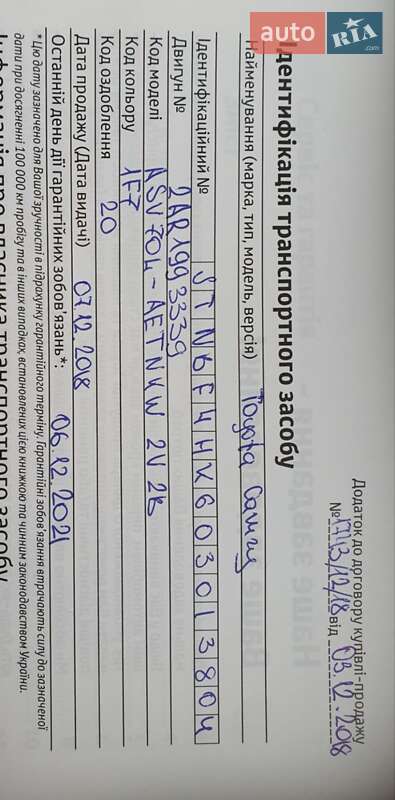 auto RIA .com
Додаток до договору купівлі-продажу
№ 1713/12/18 від 03.12.2018
Ідентифікація транспортного засобу
Найменування (марка, тип, модель, версія) Toyota Camry
Ідентифікаційний № JTNBF4HK603013804
Двигун № 2AR1993339
Код моделі ASV70L-AETNKW 2V 2B
Код кольору 1F7
Код оздоблення 20
Дата продажу (Дата видачі) 07.12.2018
Останній день дії гарантійних зобов'язань*: 06.12.2021
*Цю дату зазначено для Вашої зручності в підрахунку гарантійного терміну. Гарантійні зобов'язання втрачають силу до зазначеної
дати при досягненні 100 000 км пробігу та в інших випадках, встановлених цією книжкою та чинним законодавством України.
Інформація про власника транспортного засобу